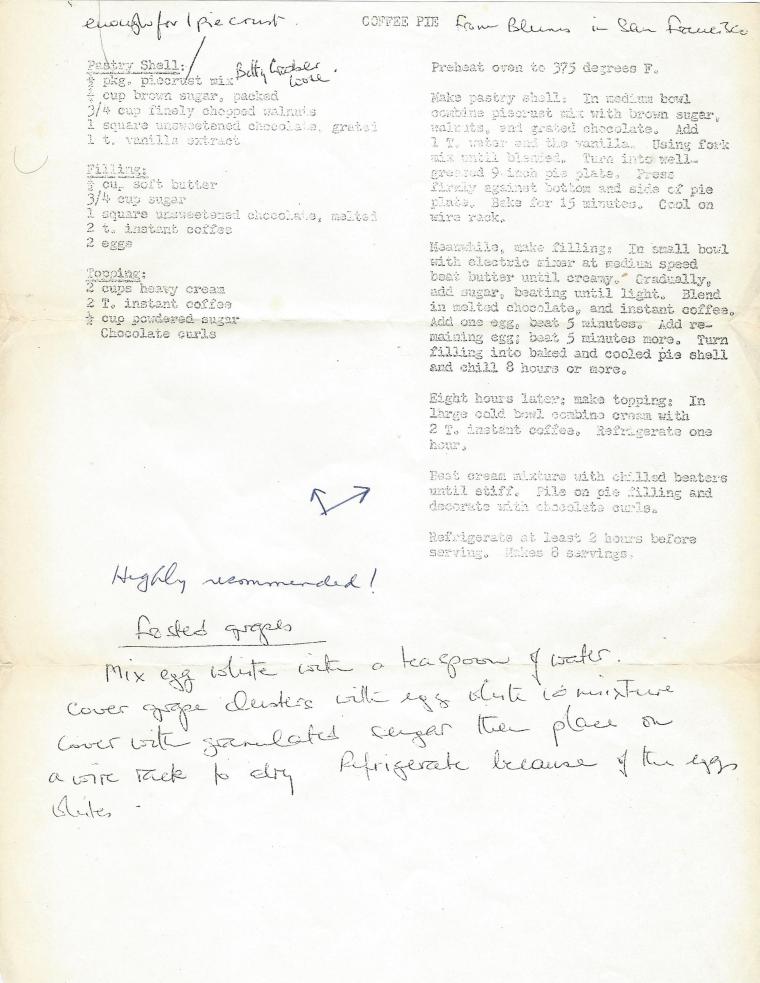 enough for 1 pie crust.
COFFEE PIE From Blums in San Francisco
Pastry Shell:
½ pkg. piecrust mix Betty Crocker
¼ cup brown sugar, packed
3/4 cup finely chopped walnuts
1 square unsweetened chocolate, grated
1 t. vanilla extract
Filling:
½ cup soft butter
3/4 cup sugar
1 square unsweetened chocolate, melted
2 t. instant coffee
2 eggs
Topping:
2 cups heavy cream
2 T. instant coffee
½ cup powdered sugar
Chocolate curls
Preheat oven to 375 degrees F.
Make pastry shell: In medium bowl
combine piecrust mix with brown sugar,
walnuts, and grated chocolate. Add
1 T. water and the vanilla. Using fork
mix until blended. Turn into well-
greased 9-inch pie plate. Press
firmly against bottom and side of pie
plate. Bake for 15 minutes. Cool on
wire rack.
Meanwhile, make filling: In small bowl
with electric mixer at medium speed
beat butter until creamy. Gradually,
add sugar, beating until light. Blend
in melted chocolate, and instant coffee.
Add one egg, beat 5 minutes. Add re-
maining egg; beat 5 minutes more. Turn
filling into baked and cooled pie shell
and chill 8 hours or more.
Eight hours later; make topping: In
large cold bowl combine cream with
2 T. instant coffee. Refrigerate one
hour.
Beat cream mixture with chilled beaters
until stiff. Pile on pie filling and
decorate with chocolate curls.
Refrigerate at least 2 hours before
serving. Makes 8 servings.
Highly recommended!
Frosted grapes
Mix egg white with a teaspoon of water.
Cover grape clusters with egg white mixture
Cover with granulated sugar then place on
a wire rack to dry Refrigerate because of the eggs
whites.